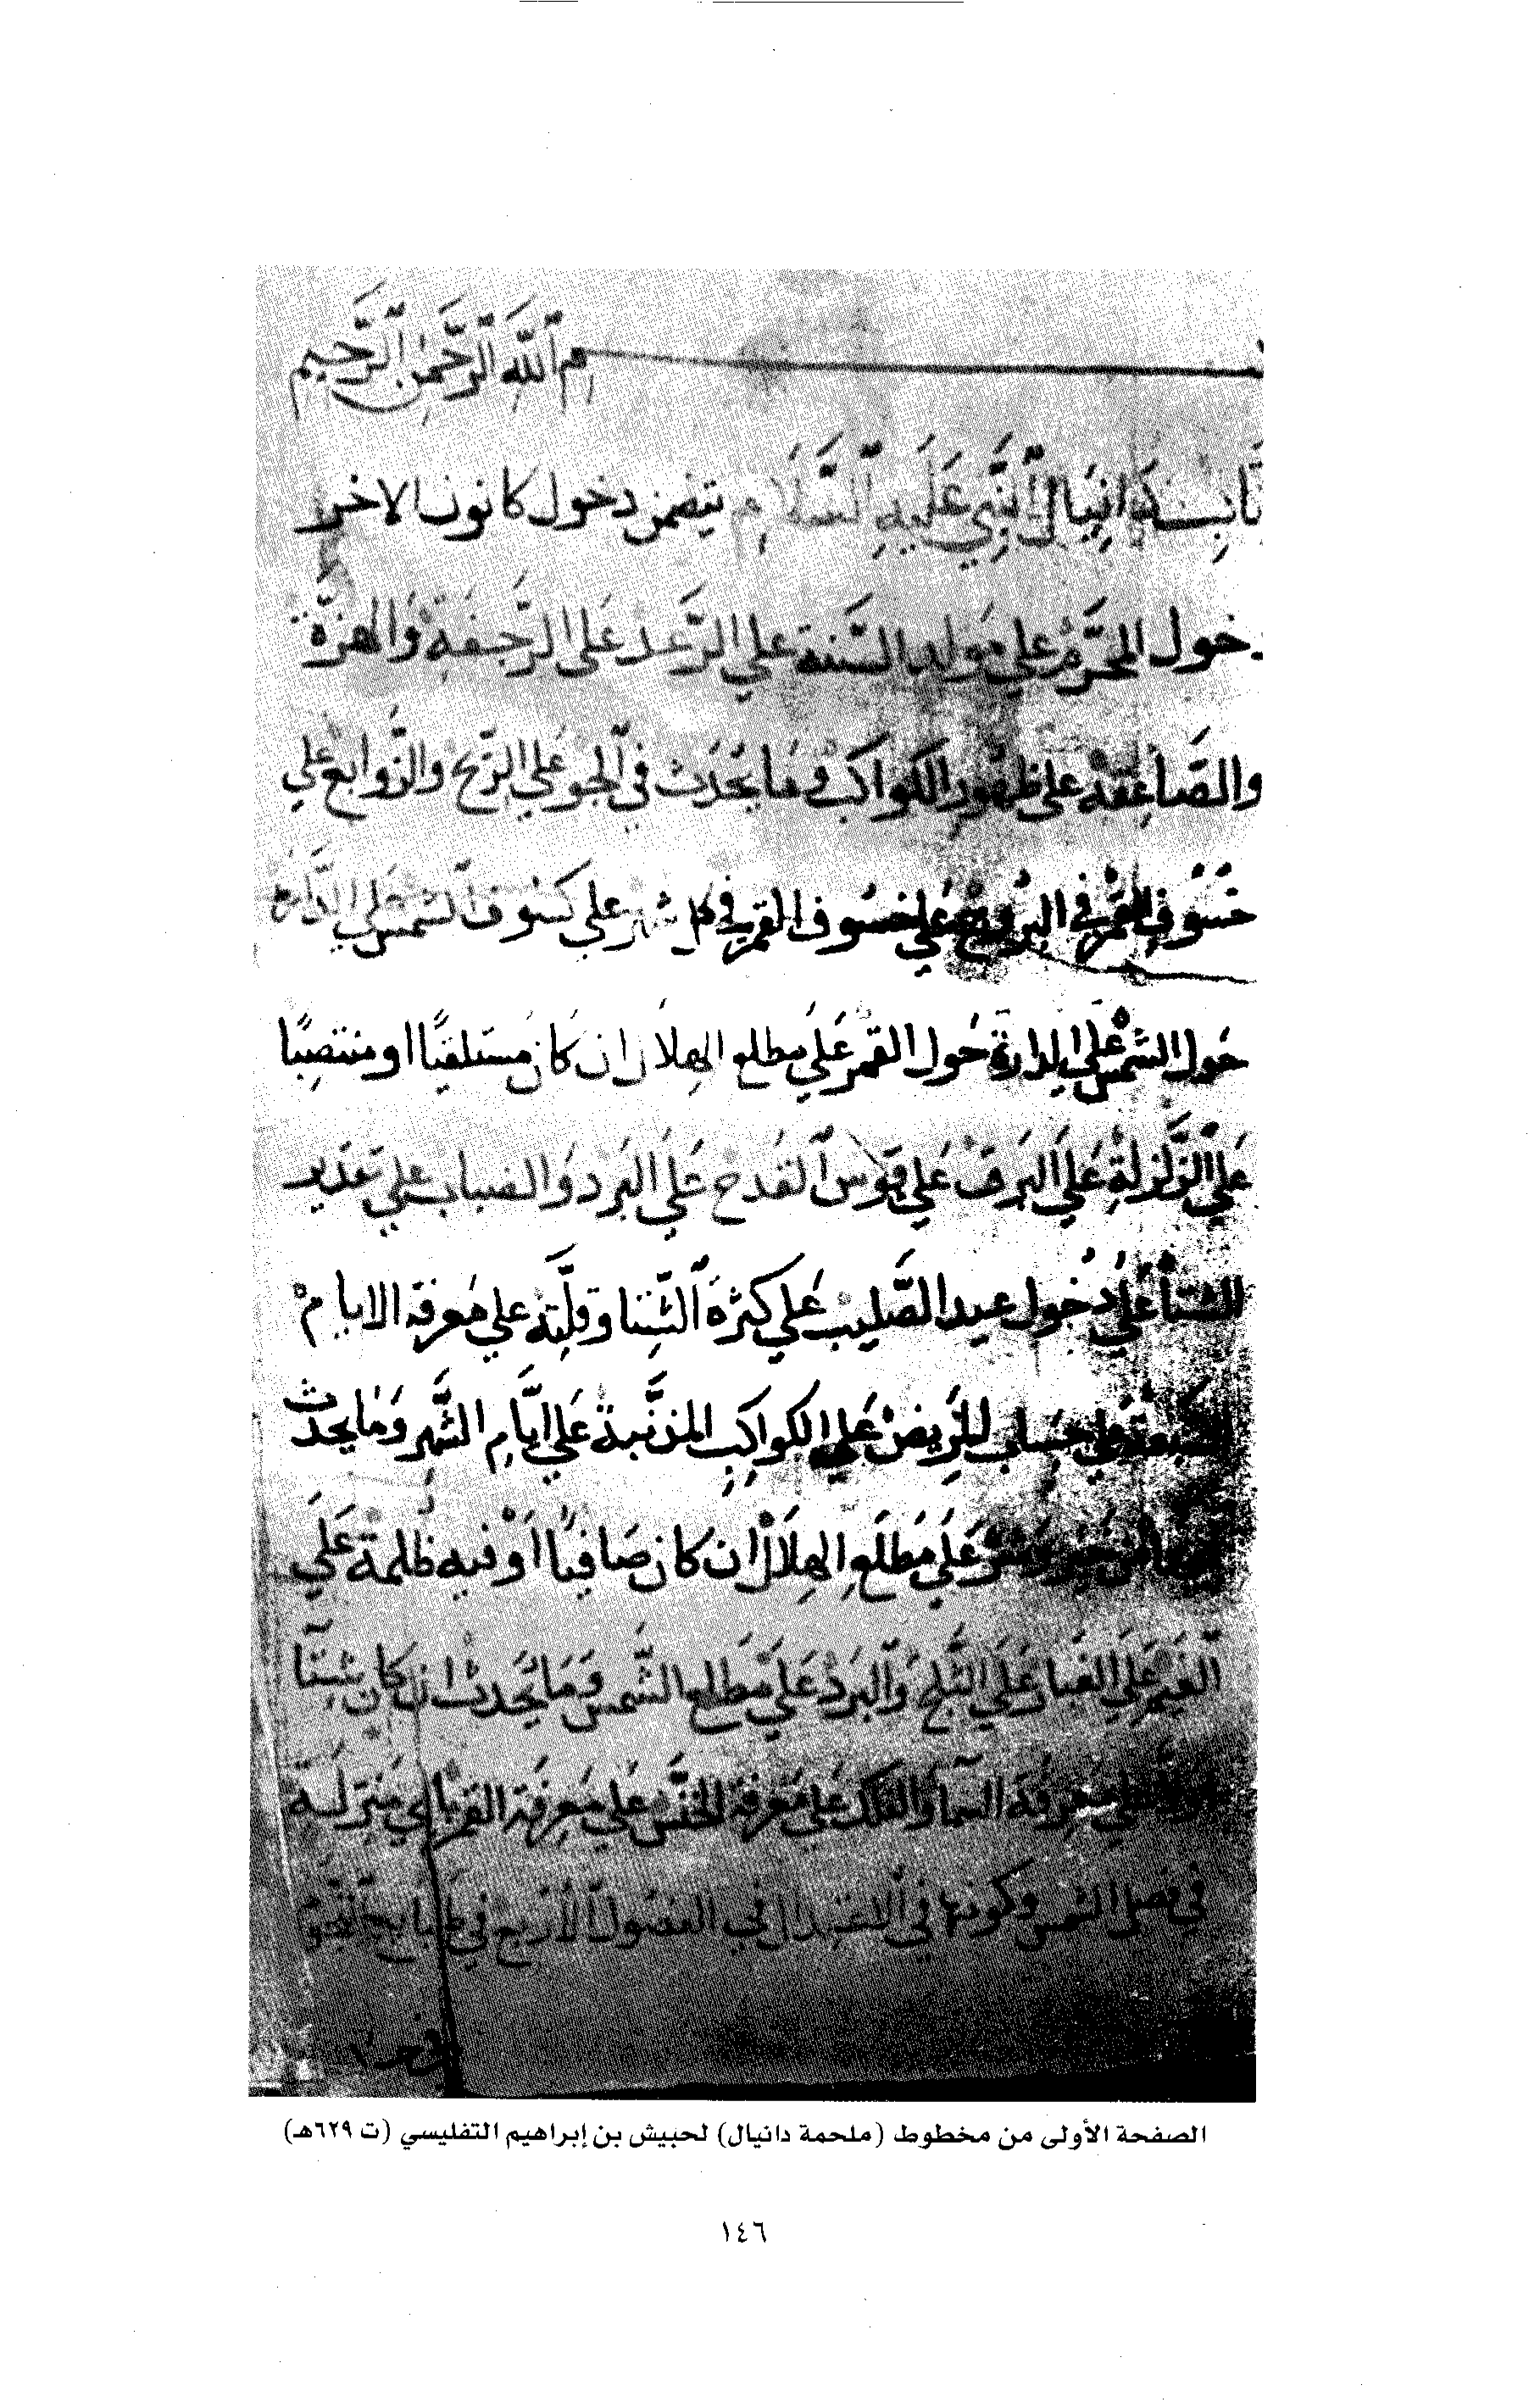 م الله الرَّحمن الرَّحيم
دانيال النَّبي عَلَيهِ السَّلَام يتضمن دخول كانون الاخر
دخول المحرَّم علي مولد السَّنة علي الرَّعد عَلى الرَّجفة وَالهزَّة
والصَّاعقة على ظهور الكواكب وَمَا يَحْدَث في الجو عَلي الرّيح والزَّوابع علي
خسُوف القمر في البُروج عَلي خسُوف القمر في كل شهر علي كسُوف الشمس علي الدَّارة
حَول الشمْس علي الدارة حَول القمر عَلَي مطلع الهلال ان كان مستلقيًا او منتصِبًا
عَلي الزَّلزلة عَلَي البَرق عَلي قوْس القدح عَلَي البَرد وَالضباب علي تقدير
الشتا عَلَي دُخول عيد الصَّليب عَلي كثرة الشِّتا وقلَّته علي مَعرفة الايام
السَّبعة علي حسَاب المريض عَلي الكواكِب المذنَّبة عَلي ايَّام الشَّهر وَمَا يحدث
فيها من خير وشر عَلَي مَطلَعِ الهِلَال ان كان صَافيًا أوْ فيه ظلمة عَلَي
الغَيم عَلَي الغبَار عَلَي الثَّلج وَالبَرَدْ عَلَي مَطلع الشَّمس وَمَا يَحَدث ان كان شِتَّا
علي معرفة السمآ وَالفلك علي مَعْرفة الخنَّس علي مَعِرفة القمر باي منزلة
في فصل الشمس وكونها في الاعتدال في الفصُول الأربع في
الصفحة الأولى من مخطوط (ملحمة دانيال) لحبيش بن إبراهيم التفليسي (ت ٦٢٩هـ)
١٤٦